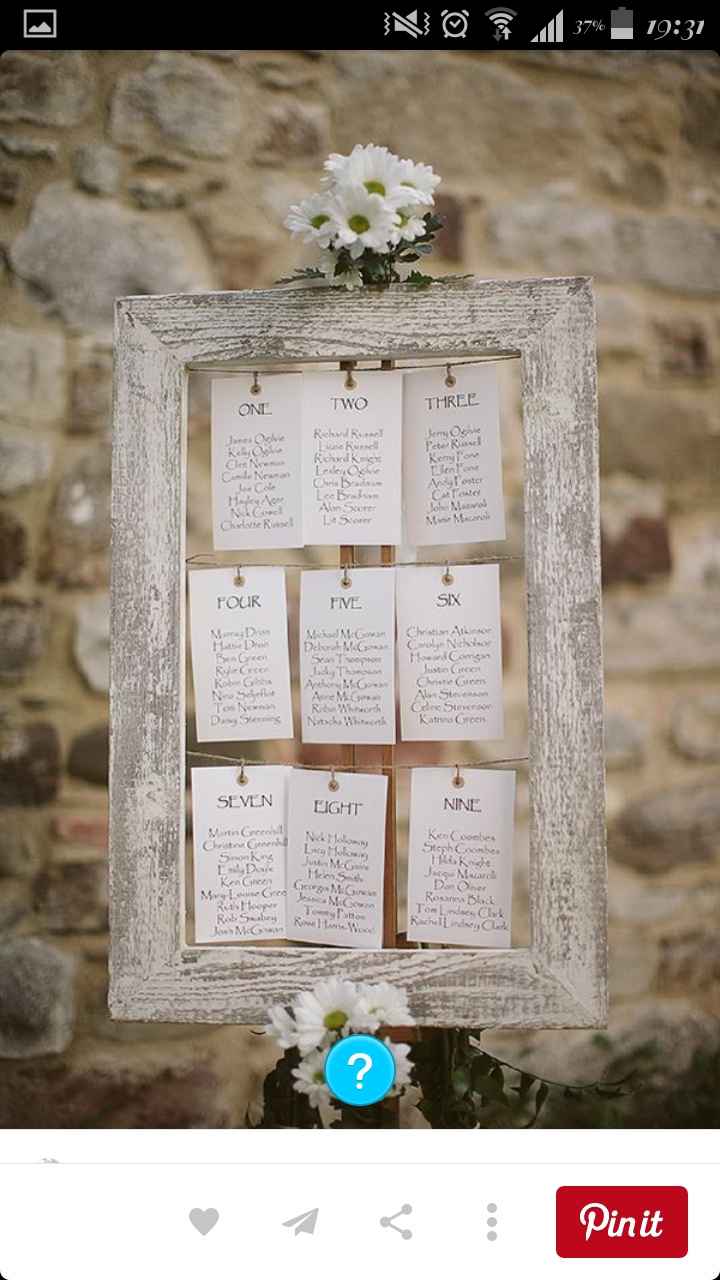 37%
19:31
ONE
James Ogilvie
Kelly Ogilvie
Clive Newman
Camille Newman
Joe Cole
Hayley Agar
Nick Cowell
Charlotte Russell
TWO
Richard Russell
Lizzie Russell
Richard Knight
Lesley Ogilvie
Chris Bradnam
Lee Bradnam
Alan Scorer
Lit Scorer
THREE
Jerry Ogilvie
Peter Russell
Kerry Fone
Ellen Fone
Andy Foster
Cat Foster
John Macaroli
Marie Macaroli
FOUR
Murray Dron
Hattie Dron
Ben Green
Rylie Green
Robin Gibbs
Nina
Tom Newman
Daisy Stenning
FIVE
Michael McGowan
Deborah McGowan
Sean Thompson
Jacky Thompson
Anthony McGowan
Anne McGowan
Robin Whitworth
Natasha Whitworth
SIX
Christian Atkinson
Carolyn Nicholson
Howard Corrigan
Justin Green
Christie Green
Alan Stevenson
Celine Stevenson
Katrina Green
SEVEN
Martin Greenhill
Christine Greenhill
Simon King
Emily Doux
Ken Green
Mary-Louise Gree
Ruth Hooper
Rob Swabey
Josh McGowan
EIGHT
Nick Holloway
Lucy Holloway
Justin McGuire
Helen Smith
Georgia McGowan
Jessica McGowan
Tommy Patton
Rose Harris-Wood
NINE
Ken Coombes
Steph Coombes
Hilda Knight
Jacqui Macaroli
Dan Oliver
Rosanna Black
Tom Lindsey Clark
Rachel Lindsey Clark
?
Pin it